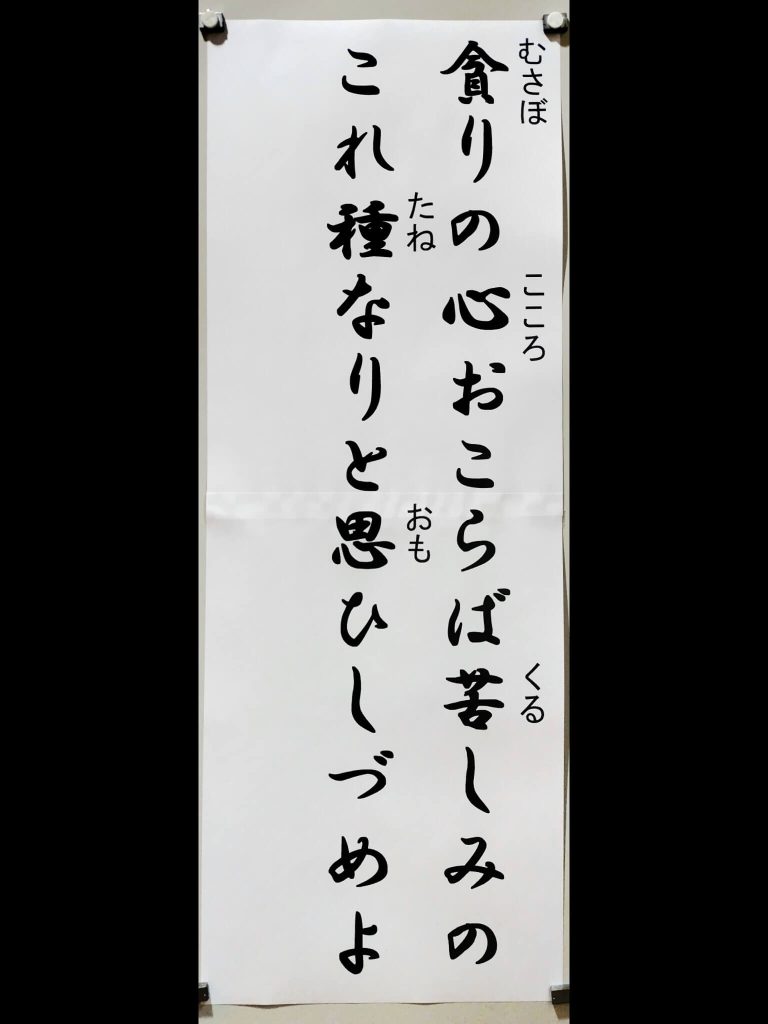 貪りの心おこらば苦しみの
これ種なりと思ひしづめよ
むさぼ
こころ
くる
たね
おも